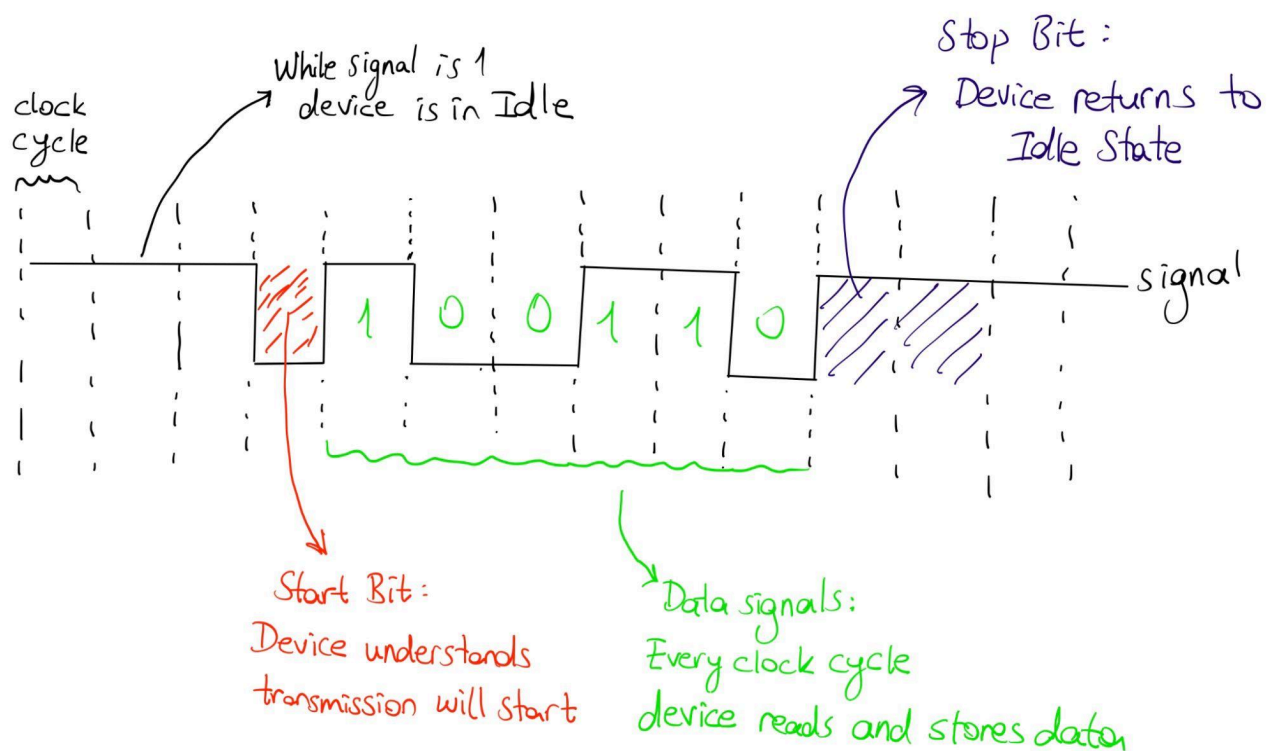 clock
cycle
While signal is 1
device is in Idle
Stop Bit:
Device returns to
Idle State
signal
1 0 0 1 1 0
Start Bit:
Device understands
transmission will start
Data signals:
Every clock cycle
device reads and stores data